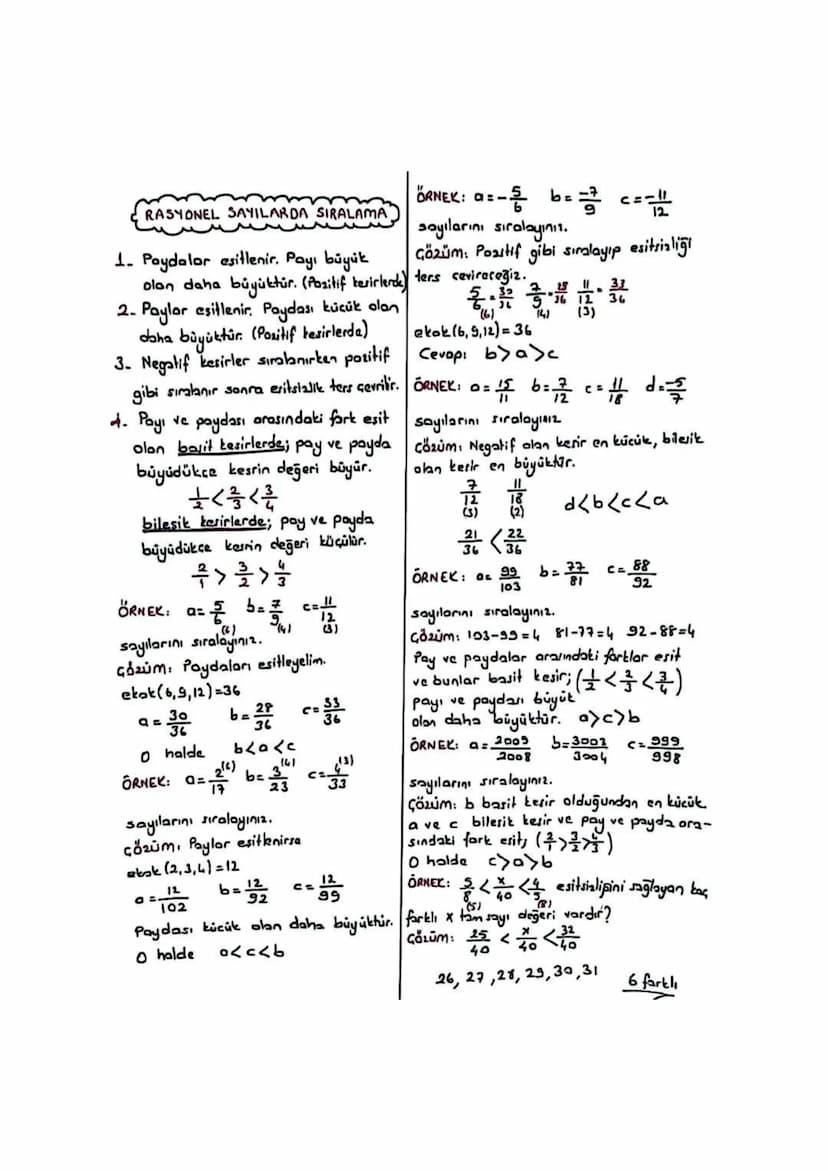 RASYONEL SAYILARDA SIRALAMA
1- Paydalar eşitlenir. Payı büyük
olan daha büyüktür. (Pozitif kesirlerde)
2- Paylar eşitlenir. Paydası küçük olan
daha büyüktür. (Pozitif kesirlerde)
3- Negatif kesirler sıralanırken pozitif
gibi sıralanır sonra eşitsizlik ters çevrilir.
4- Payı ve paydası arasındaki fark eşit
olan basit kesirlerde; pay ve payda
büyüdükçe kesrin değeri büyür.
1/2 < 2/3 < 3/4
bileşik kesirlerde; pay ve payda
büyüdükçe kesrin değeri küçülür.
2/1 > 3/2 > 4/3
ÖRNEK: a=5/6 b=7/9 c=11/12
(6) (4) (3)
sayılarını sıralayınız.
Çözüm: Paydaları eşitleyelim.
ekok(6,9,12)=36
a=30/36 b=28/36 c=33/36
O halde b<a<c
ÖRNEK: a=2(6)/17 b=3(4)/23 c=4(3)/33
sayılarını sıralayınız.
Çözüm: Paylar eşitlenirse
ekok(2,3,4)=12
a=12/102 b=12/92 c=12/99
Paydası küçük olan daha büyüktür.
O halde a<c<b
ÖRNEK: a=-5/6 b=-7/9 c=-11/12
sayılarını sıralayınız.
Çözüm: Pozitif gibi sıralayıp eşitsizliği
ters çevireceğiz.
5/6=30/36 7/9=28/36 11/12=33/36
(6) (4) (3)
ekok(6,9,12)=36
Cevap: b>a>c
ÖRNEK: a=15/11 b=7/12 c=11/18 d=-5/7
sayılarını sıralayınız
Çözüm: Negatif olan kesir en küçük, bileşik
olan kesir en büyüktür.
7/12 11/18 d<b<c<a
(3) (2)
21/36 < 22/36
ÖRNEK: a=99/103 b=77/81 c=88/92
sayılarını sıralayınız.
Çözüm: 103-99=4 81-77=4 92-88=4
Pay ve paydalar arasındaki farklar eşit
ve bunlar basit kesir; (1/2 < 2/3 < 3/4)
payı ve paydası büyük
olan daha büyüktür. a>c>b
ÖRNEK: a=2009/2008 b=3003/3004 c=999/998
sayılarını sıralayınız.
Çözüm: b basit kesir olduğundan en küçük
a ve c bileşik kesir ve pay ve payda ara-
sındaki fark eşit; (2/1>3/2>4/3)
O halde c>a>b
ÖRNEK: 5/8 < x/40 < 4/5 eşitsizliğini sağlayan kaç
(5) (8)
farklı x tam sayı değeri vardır?
Çözüm: 25/40 < x/40 < 32/40
26, 27, 28, 29, 30, 31 6 farklı